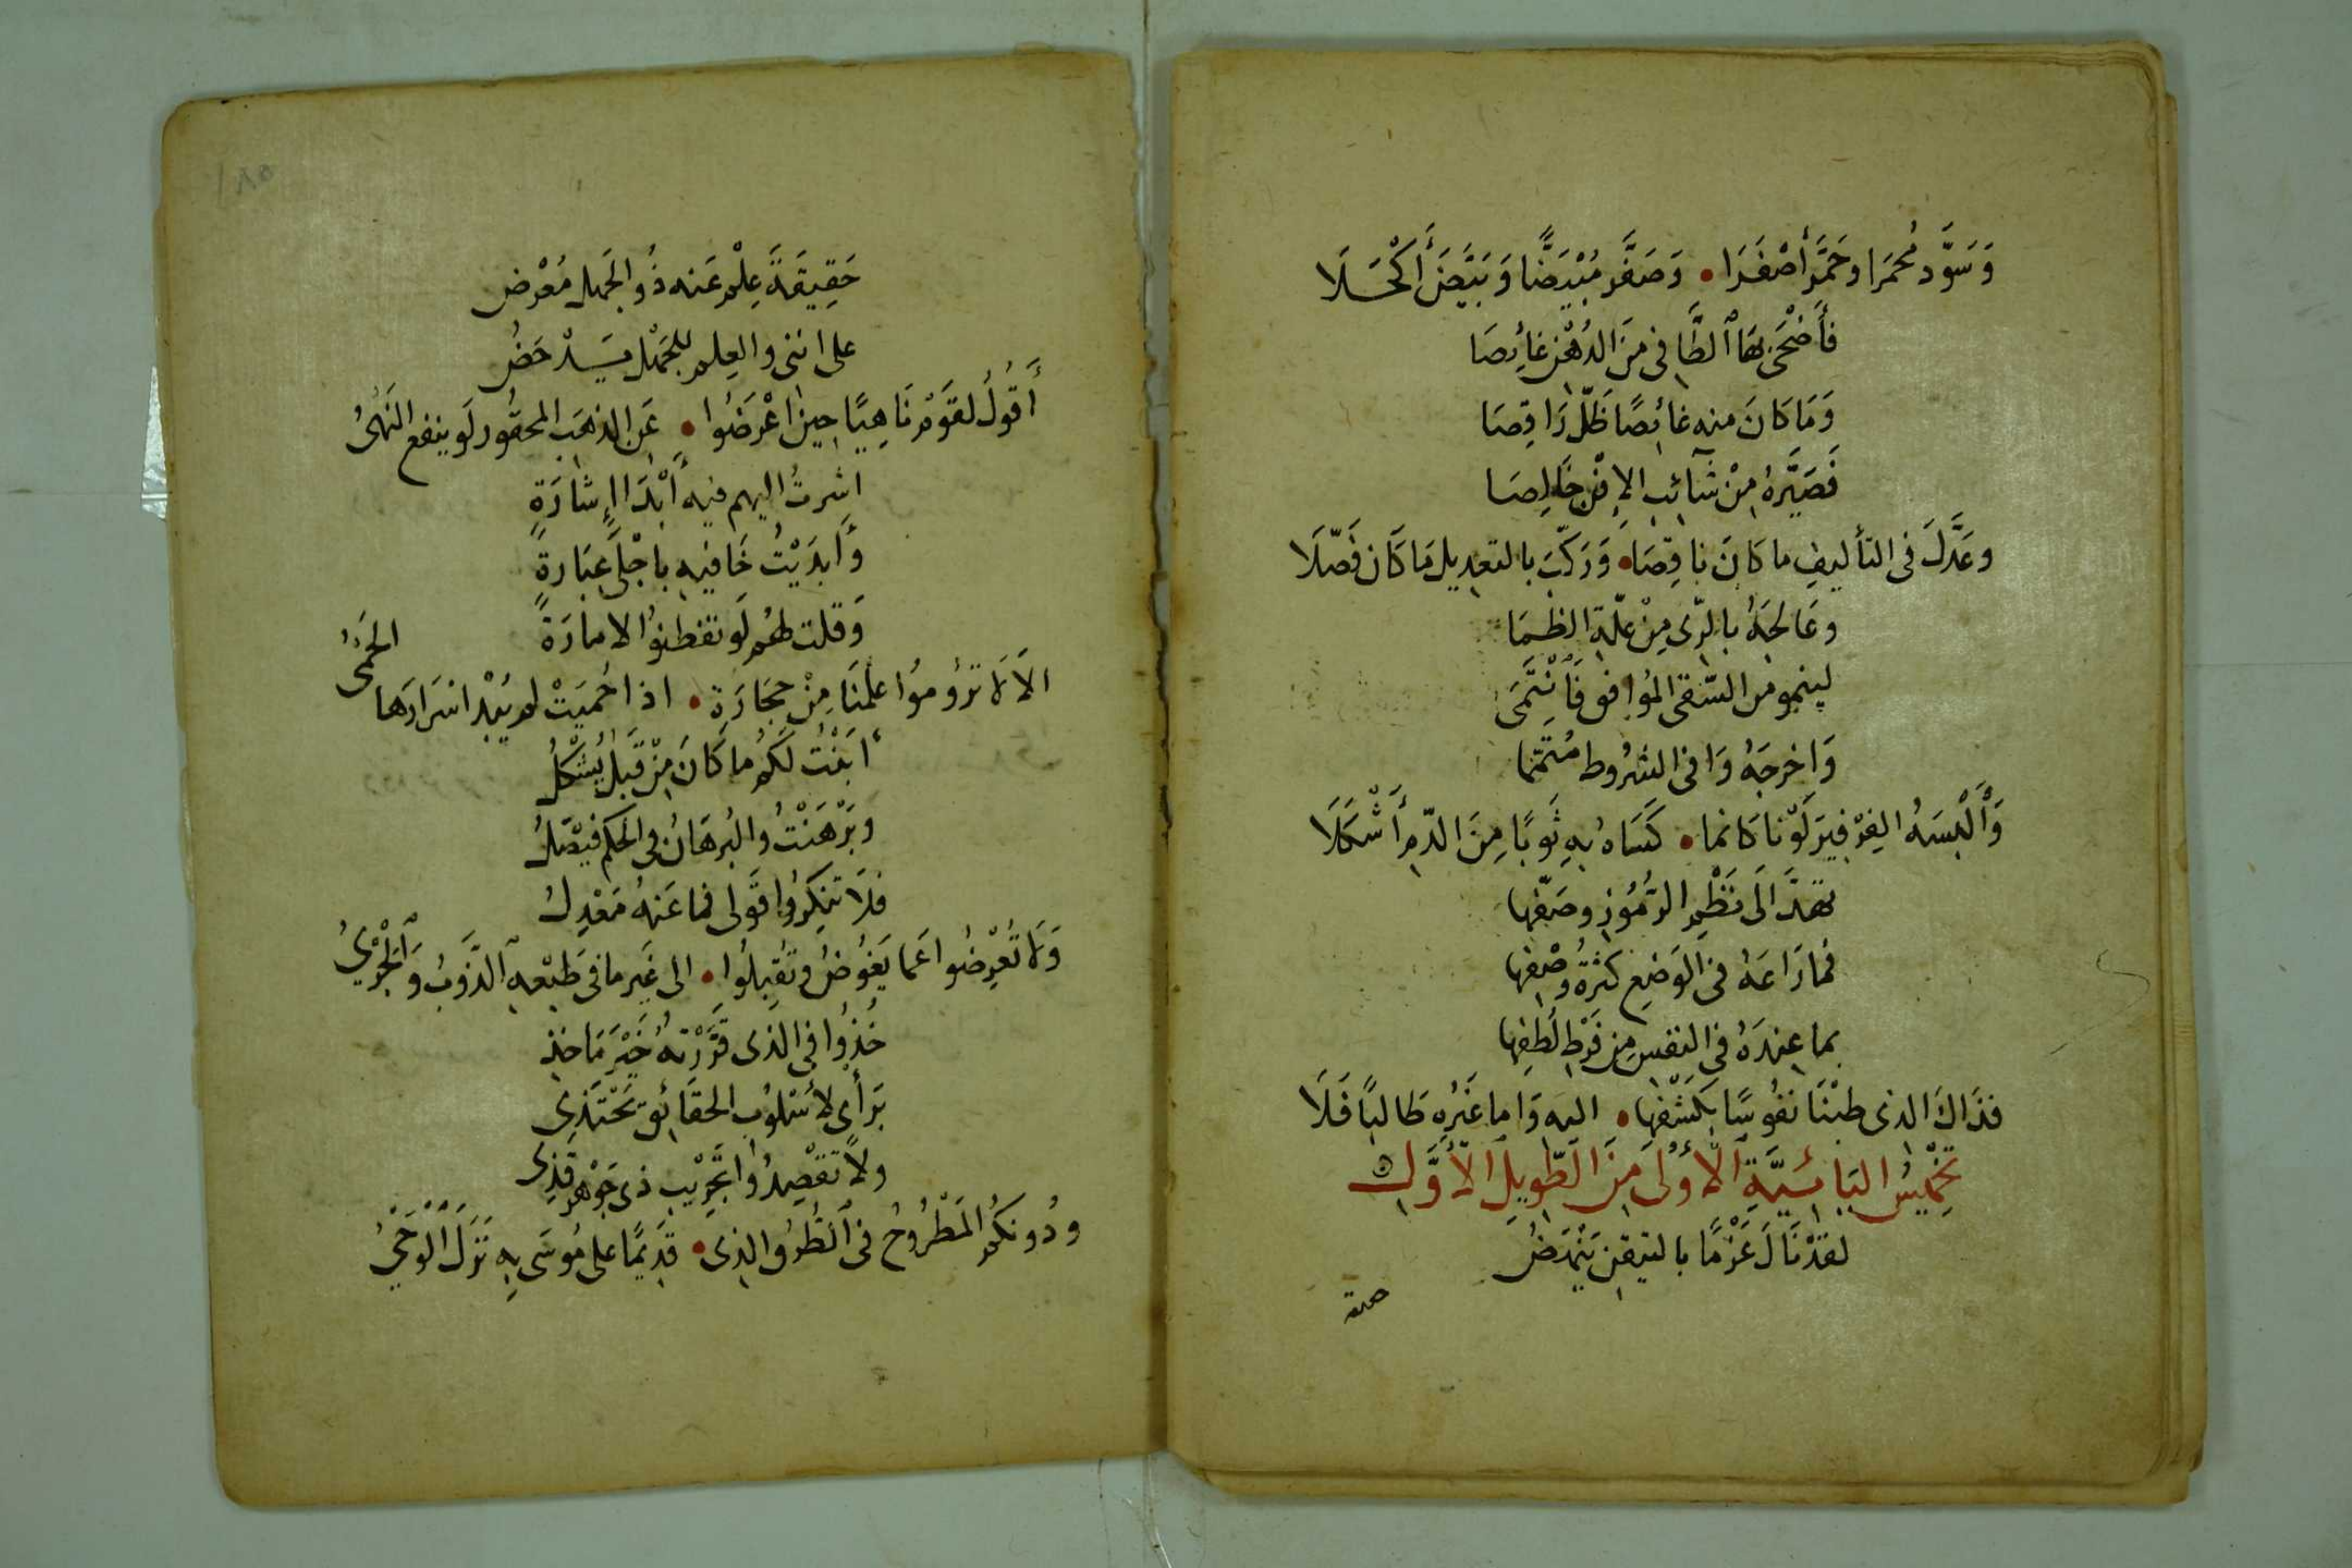 وَسَوَّد مُحمَرا وحَمَّر أَصْفَرَا • وَصَفَّر مُبْيَضًّا وَبَيَّضَ أَكْحَلَا
فأَضْحَى بهَا الطَّافِى مِنَ الدُّهْنِ غائِصَا
وَمَا كانَ منه غائِصًا ظَلَّ رَاقِصَا
فَصَيَّرهُ مِنْ شَآئبِ الإفْنِ خَالِصَا
وعَدَّلَ فى التأليفِ ما كانَ ناقِصَا • وَرَكّبَ بالتعدِيل مَا كَان فَصّلَا
وعَالجَهُ بالرّى مِنْ علّةِ الظمَا
لينمو من السَّقى المُوافق فَانْتَمَى
وَاخرجَهُ وَافى الشرُوط مُتَمَّمَا
وَأَلْبسَهُ الفِرْفِير لَوْنا كَانما • كَسَاهُ بهِ ثَوبًا مِنَ الدّمِ أَشْكَلَا
تهدَّا الَى نَظْمِ الرّمُوزِ وصَفّها
فما رَاعَهُ فى الوَضعِ كثرةُ وصْفِها
بما عِندَهُ فى النفسِ مِن فَرْطِ لُطفِها
فذَاكَ الذى طبْنَا نفُوسًا بكَشْفِها • اليه وَاما غَيْرِه طالبًا فَلَا
تخْمِيسُ اليَائيَّةِ الأُوْلَى مِنَ الطّوِيلِ الأَوَّلِ
لقدْ نَالَ عَزْمًا باليقينِ يَنْهَضُ
حقيقة
حَقِيقَةَ عِلْمٍ عَنه ذُو الجَهل مُعْرِض
على اننى والعِلم للجَهْل يَدْحَضُ
أَقُولُ لقَوْمٍ نَاهِيًا حِينَ اعْرَضُوا • عَنِ الذهَبِ المحقُور لَو ينفع النَهْىُ
اشرتُ اليهم فيه أَبْدَا اشارَةٍ
وَأَبدَيْتُ خَافيهِ باجْلَى عِبَارةٍ
وَقلت لهُم لَو تفطنوُا لامارَةً
الَا لَا ترُومُوا علمنَا مِنْ حِجَارَةٍ • اذا حُميَتْ لم يُبْدِ اسْرَارَها الحَمْىُ
أبَنْتُ لكم ما كَانَ مِنْ قَبلُ يُشْكِلُ
وبَرْهَنْتُ والبُرهَانُ فى الحكم فَيْصَلُ
فلَا تنكِرُوا قَولى فما عَنهُ مَعْدِلُ
وَلَا تُعْرِضُوا عَما يَغُوصُ وتُقبِلُوا • الى غَير ما فى طَبْعِهِ الذَّوبُ وَالجَرْىُ
خُذوُا فى الذى قرَّرْتهُ خَيْرَ مَاخذ
بَرأىٍ لأُسْلُوبِ الحقَائق يَحْتَذِى
ولَا تَقْصِدُوا تجْرِيْبِ ذى جَوْهر قَذِى
ودُونكُمُ المَطْرُوحُ فى الطُرُق الذِى • قَدِيمًا على مُوسَى بِهِ نَزَلَ الْوَحْىُ